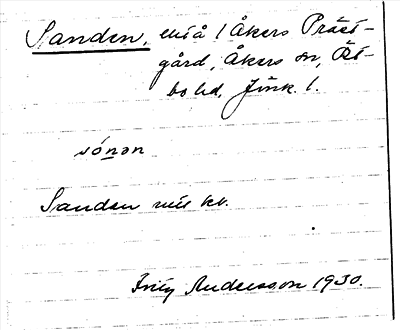 Sanden, enstå 1 Åkers Präst-
gård, Åkers sn, Åk-
bo hd, Jönk. l.
sónən
Sanden
Fritz Andersson 1930.